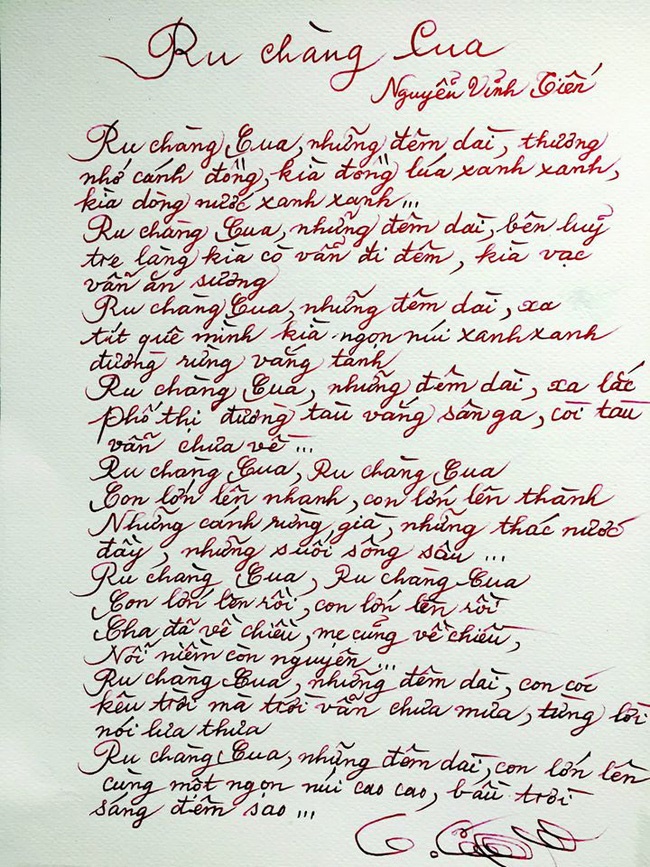 Ru chàng Cua
Nguyễn Vĩnh Tiến
Ru chàng Cua, những đêm dài, thương
nhớ cánh đồng, kìa đồng lúa xanh xanh,
kìa dòng nước xanh xanh...
Ru chàng Cua, những đêm dài, bên luỹ
tre làng kìa cò vẫn đi đêm, kìa vạc
vẫn ăn sương
Ru chàng Cua, những đêm dài, xa
tít quê mình kìa ngọn núi xanh xanh
đường rừng vắng tanh
Ru chàng Cua, những đêm dài, xa lắc
phố thị đường tàu vắng sân ga, còi tàu
vẫn chưa về...
Ru chàng Cua, Ru chàng Cua
Con lớn lên nhanh, con lớn lên thành
Những cánh rừng già, những thác nước
đầy, những suối sông sâu...
Ru chàng Cua, Ru chàng Cua
Con lớn lên rồi, con lớn lên rồi
Cha đã về chiều, mẹ cũng về chiều,
Nỗi niềm còn nguyên...
Ru chàng Cua, những đêm dài, con cóc
kêu trời mà trời vẫn chưa mưa, từng lời
nói lưa thưa
Ru chàng Cua, những đêm dài, con lớn lên
cùng một ngọn núi cao cao, bầu trời
sáng đêm sao...